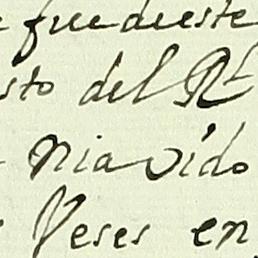 fue de este
sto del Rl
nia vido
Veses en